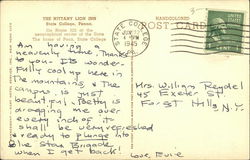 THE NITTANY LION INN
State College, Penna.
HANDCOLORED
POST CARD
STATE COLLEGE
1945
Am having a
heavenly time. Thanks
to you. It's wonder-
fully cool up here in
the mountains & the
campus is just
beautiful. Betty is
hogging me over
every inch of it.
I shall be very refreshed
& ready to plunge into
Blue Star Brigade
when I get back!
Love, Evie
Mrs. William Reydel
45 Exeter St.
Forest Hills,
N.Y.